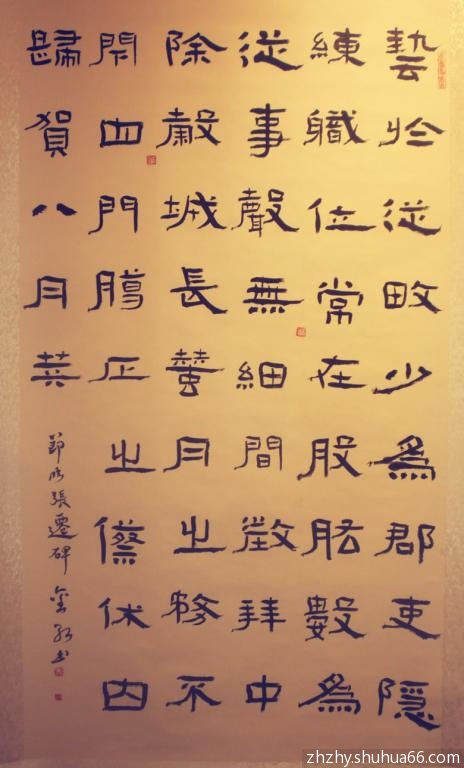 藝於從畋少為郡吏隱
練職位常在股肱數為
從事聲無細間徵拜中
除穀城長蠶月之務不
閉四門臘正之僚休囚
歸賀八月
節臨張遷碑 書
zhzhy.shuhua66.com